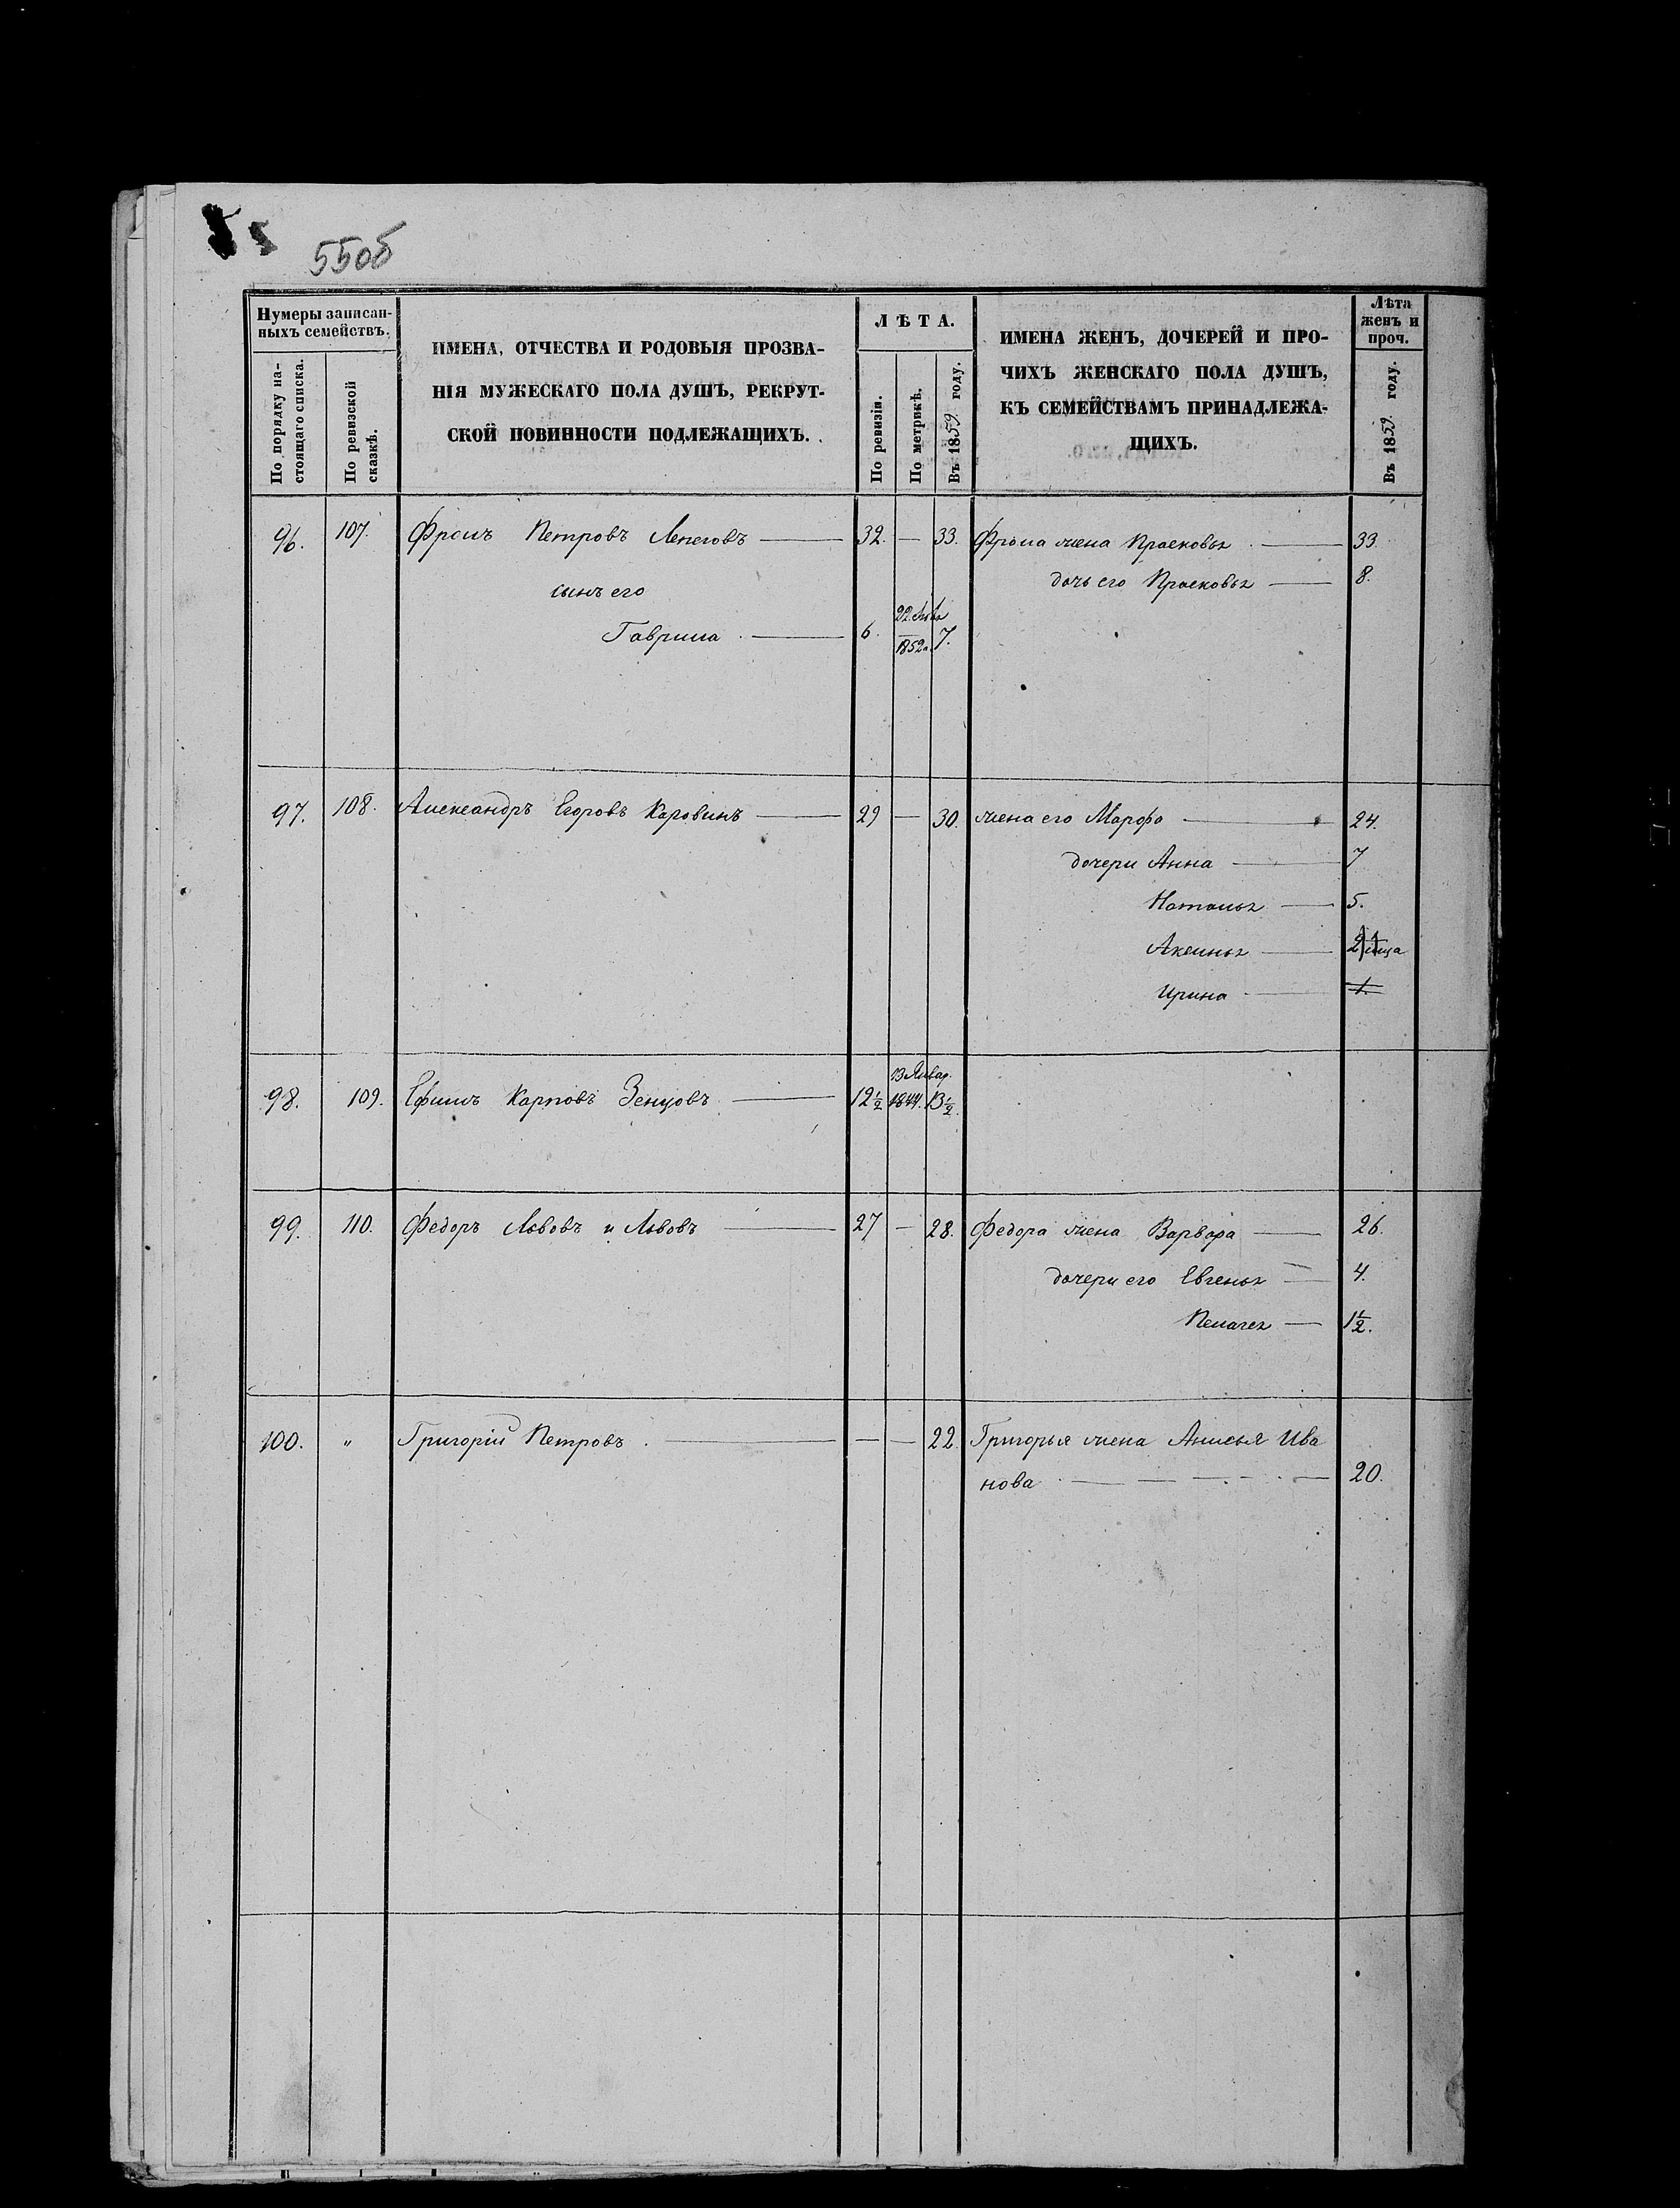 550б
Нумеры записан-
ныхъ семействъ.
По порядку на-
стоящаго списка.
По ревизской
сказкѣ.
ИМЕНА, ОТЧЕСТВА И РОДОВЫЯ ПРОЗВА-
НІЯ МУЖЕСКАГО ПОЛА ДУШЪ, РЕКРУТ-
СКОЙ ПОВИННОСТИ ПОДЛЕЖАЩИХЪ.
ЛѢТА.
По ревизіи.
По метрикѣ.
Въ 1859 году.
ИМЕНА ЖЕНЪ, ДОЧЕРЕЙ И ПРО-
ЧИХЪ ЖЕНСКАГО ПОЛА ДУШЪ,
КЪ СЕМЕЙСТВАМЪ ПРИНАДЛЕЖА-
ЩИХЪ.
Лѣта
женъ и
проч.
Въ 1859 году.
96. 107. Фролъ Петровъ — 32. — 33. Фрола жена Прасковья — 33.
дочь его Прасковья — 8.
сынъ его
Гаврила — 6. 22 1852 7.
97. 108. Александръ Егоровъ Каровинъ — 29 — 30. жена его Марфа — 24.
дочери Анна — 7
Наталья — 5.
Аксинья —
Ирина — 1.
13 Январ.
98. 109. Ефимъ Карповъ Зенцовъ — 12½ 1844. 13½.
99. 110. Федоръ Львовъ и Львовъ — 27 — 28. Федора жена Варвара — 26.
дочери его Евгенья — 4.
Пелагея — 1½.
100. " Григорій Петровъ. — — — 22. Григорья жена Анисья Ива
нова — 20.